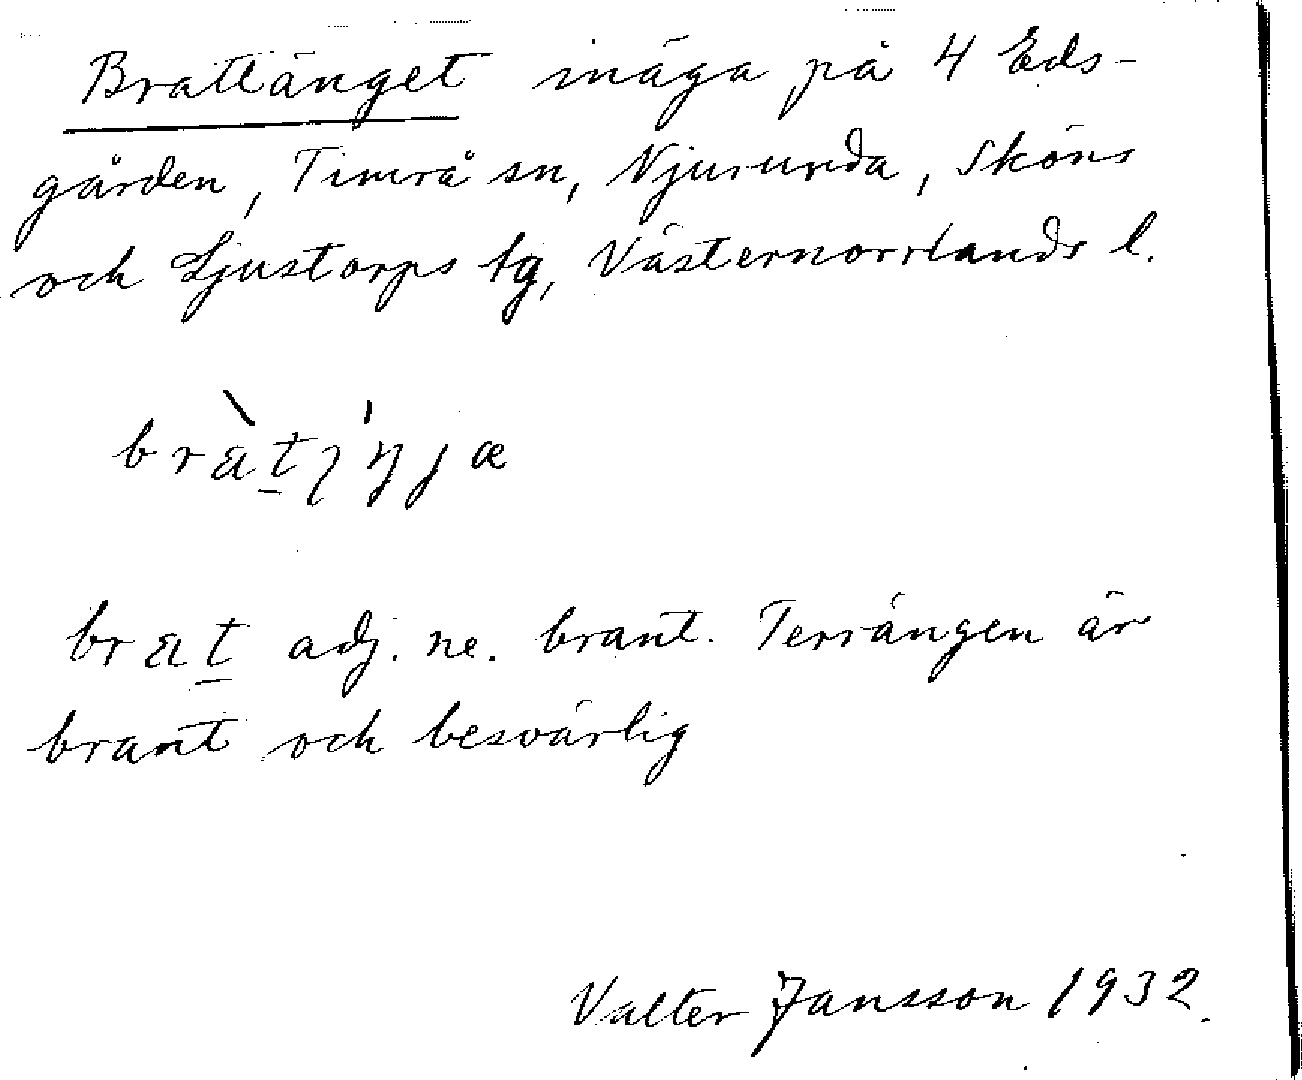 Brattänget inäga på 4 Eds-
gården, Timrå sn, Njurunda, Sköns
och Ljustorps tg, Västernorrlands l.
adj. ne. brant. Terrängen är
brant och besvärlig
Valter Jansson 1932.